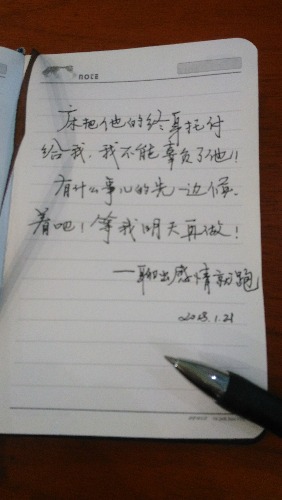 NOTE
床把他的终身托付
给我，我不能辜负了他！
有什么事儿的先一边候
着吧！等我明天再做！
一聊出感情就跑
2023.1.21